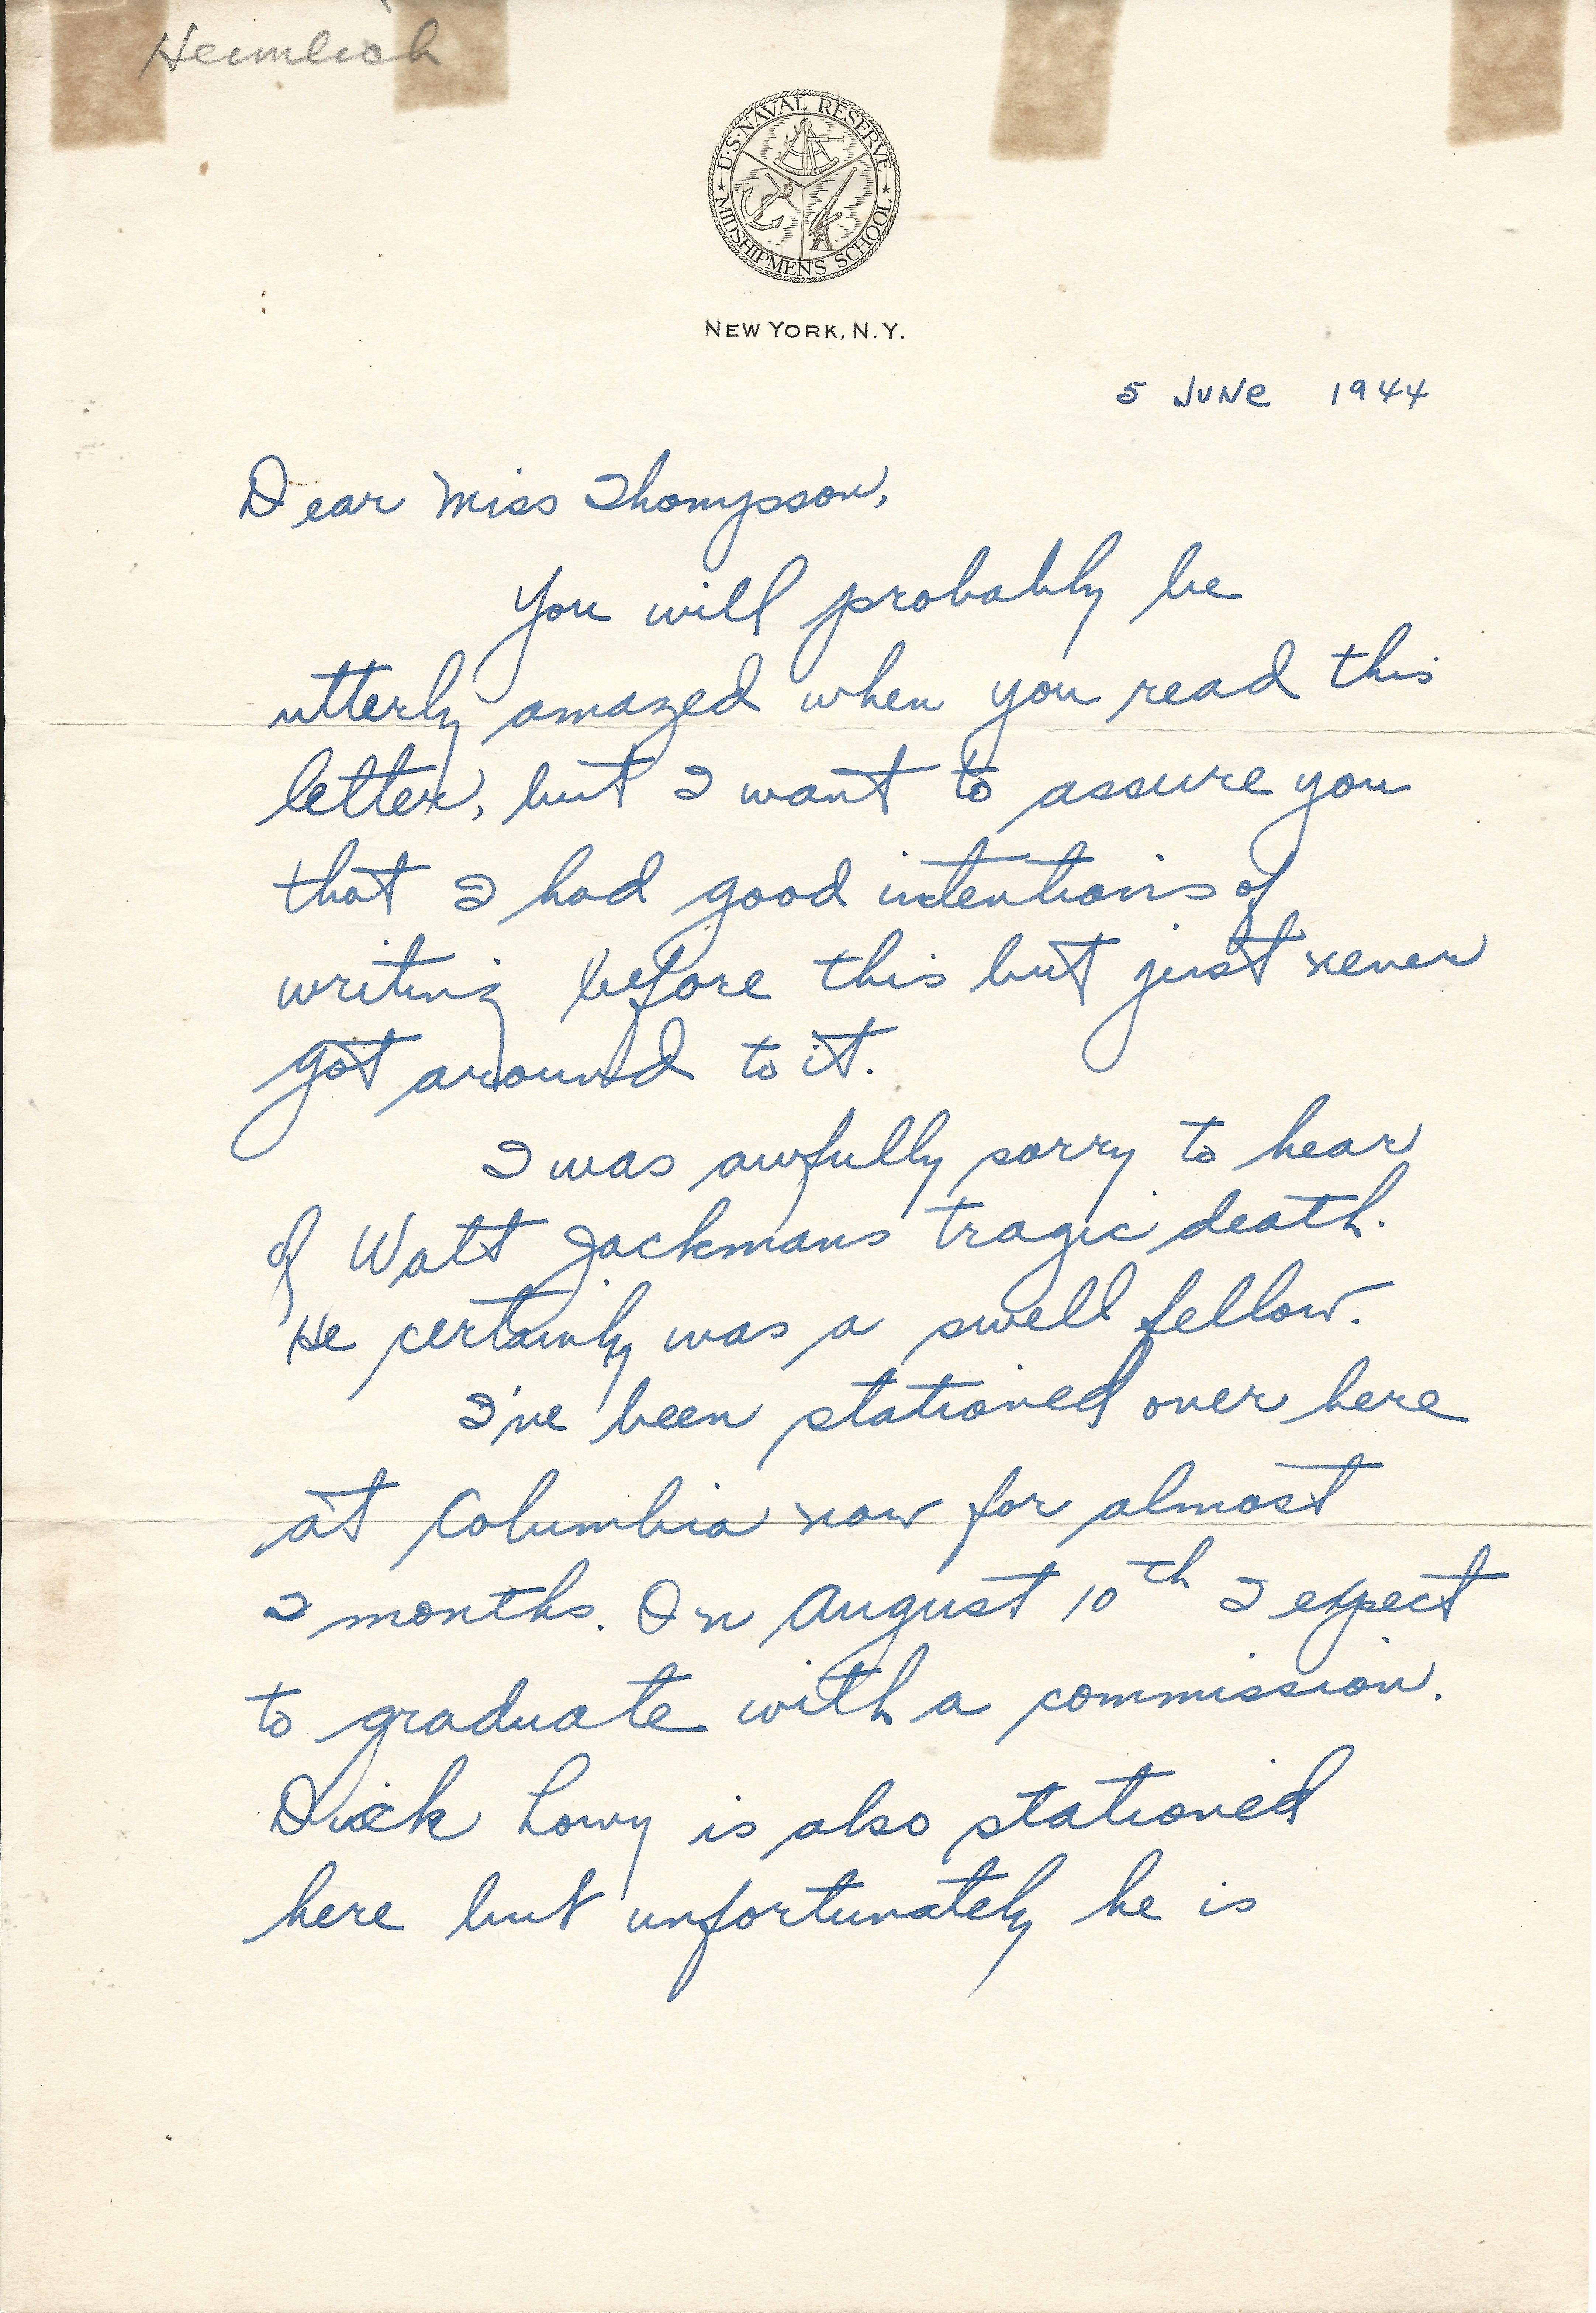 Heimlich
U.S. NAVAL RESERVE
MIDSHIPMEN'S SCHOOL
NEW YORK, N.Y.
5 JUNE 1944
Dear Miss Thompson,
You will probably be
utterly amazed when you read this
letter, but I want to assure you
that I had good intentions of
writing before this but just never
got around to it.
I was awfully sorry to hear
of Walt Jackmans tragic death.
He certainly was a swell fellow.
I've been stationed over here
at Columbia now for almost
2 months. On August 10th I expect
to graduate with a commission.
Dick Lowy is also stationed
here but unfortunately he is